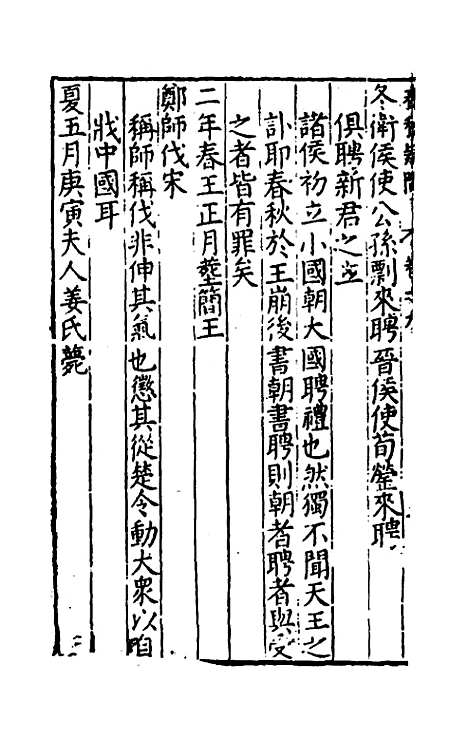 冬衛侯使公孫剽來聘晉侯使荀罃來聘
俱聘新君之立
諸侯初立小國朝大國聘禮也然獨不聞天王之
訃耶春秋於王崩後書朝書聘則朝者聘者與受
之者皆有罪矣
二年春王正月塟簡王
鄭師伐宋
稱師稱伐非伸其氣也懲其從楚令動大衆以自
戕中國耳
夏五月庚寅夫人姜氏薨